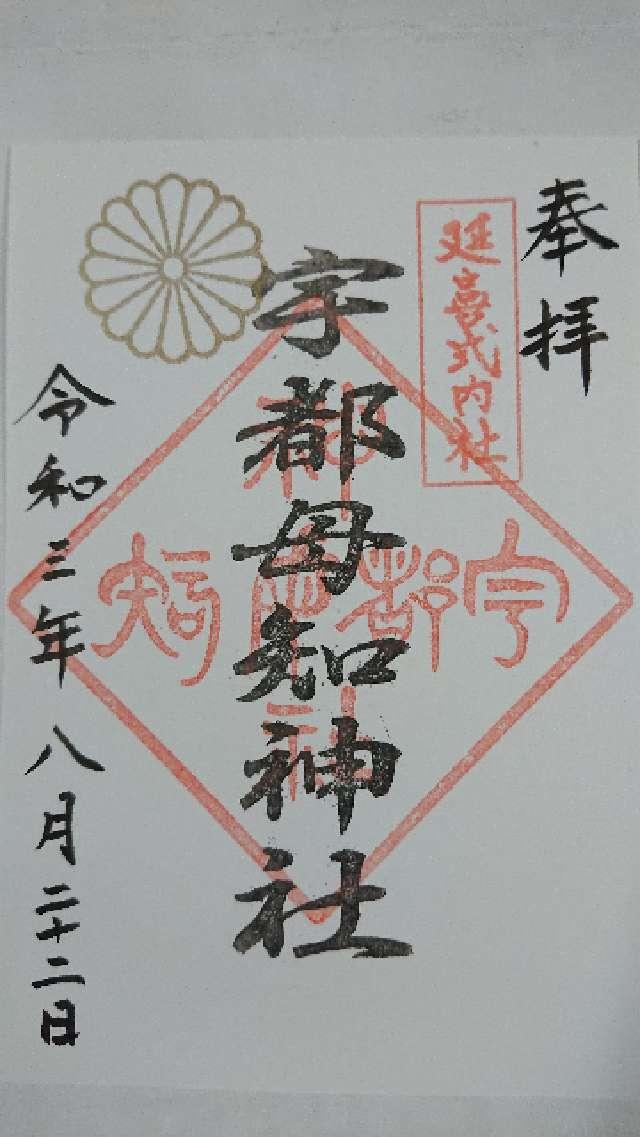 奉拝
延喜式内社
宇都母知神社
宇都母知
神社
令和三年八月二十二日